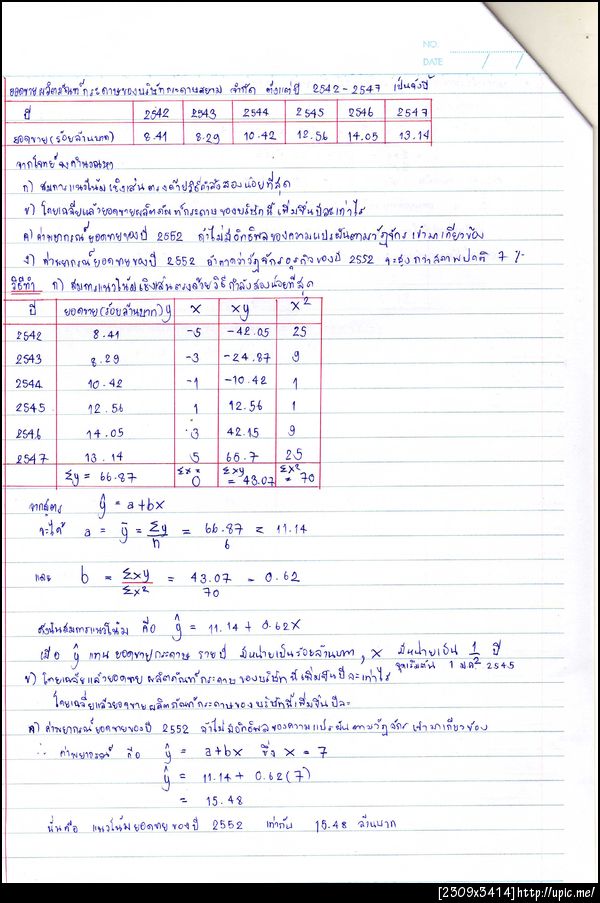 NO.
DATE / /
ยอดขายผลิตภัณฑ์กระดาษของบริษัทกระดาษสยาม จำกัด ตั้งแต่ปี 2542-2547 เป็นดังนี้
ปี 2542 2543 2544 2545 2546 2547
ยอดขาย(ร้อยล้านบาท) 8.41 8.29 10.42 12.56 14.05 13.14
จากโจทย์ จงคำนวณหา
ก) สมการแนวโน้มเชิงเส้นตรงด้วยวิธีกำลังสองน้อยที่สุด
ข) โดยเฉลี่ยแล้วยอดขายผลิตภัณฑ์กระดาษของบริษัทนี้เพิ่มขึ้นปีละเท่าไร
ค) ค่าพยากรณ์ยอดขายของปี 2552 ถ้าไม่มีอิทธิพลของความแปรผันตามวัฏจักรเข้ามาเกี่ยวข้อง
ง) ค่าพยากรณ์ยอดขายของปี 2552 ถ้าคาดว่าวัฏจักรธุรกิจของปี 2552 จะสูงกว่าสภาพปกติ 7 %
วิธีทำ ก) สมการแนวโน้มเชิงเส้นตรงด้วยวิธีกำลังสองน้อยที่สุด
ปี ยอดขาย(ร้อยล้านบาท) y x xy x²
2542 8.41 -5 -42.05 25
2543 8.29 -3 -24.87 9
2544 10.42 -1 -10.42 1
2545 12.56 1 12.56 1
2546 14.05 3 42.15 9
2547 13.14 5 65.7 25
Σy = 66.87 Σx = 0 Σxy = 43.07 Σx² = 70
จากสูตร ŷ = a+bx
จะได้ a = ȳ = Σy/n = 66.87/6 = 11.14
และ b = Σxy/Σx² = 43.07/70 = 0.62
ดังนั้นสมการแนวโน้ม คือ ŷ = 11.14 + 0.62x
เมื่อ ŷ แทน ยอดขายกระดาษ รายปี มีหน่วยเป็นร้อยล้านบาท, x มีหน่วยเป็น 1/2 ปี
จุดเริ่มต้น 1 มค 2545
ข) โดยเฉลี่ยแล้วยอดขาย ผลิตภัณฑ์กระดาษ ของบริษัทนี้เพิ่มขึ้นปีละเท่าไร
โดยเฉลี่ยแล้วยอดขายผลิตภัณฑ์กระดาษของบริษัทนี้เพิ่มขึ้นปีละ
ค) ค่าพยากรณ์ยอดขายของปี 2552 ถ้าไม่มีอิทธิพลของความแปรผันตามวัฏจักร เข้ามาเกี่ยวข้อง
∴ ค่าพยากรณ์ คือ ŷ = a+bx ซึ่ง x = 7
ŷ = 11.14 + 0.62(7)
= 15.48
นั่นคือ แนวโน้มยอดขายของปี 2552 เท่ากับ 15.48 ล้านบาท
[2309x3414]http://upic.me/